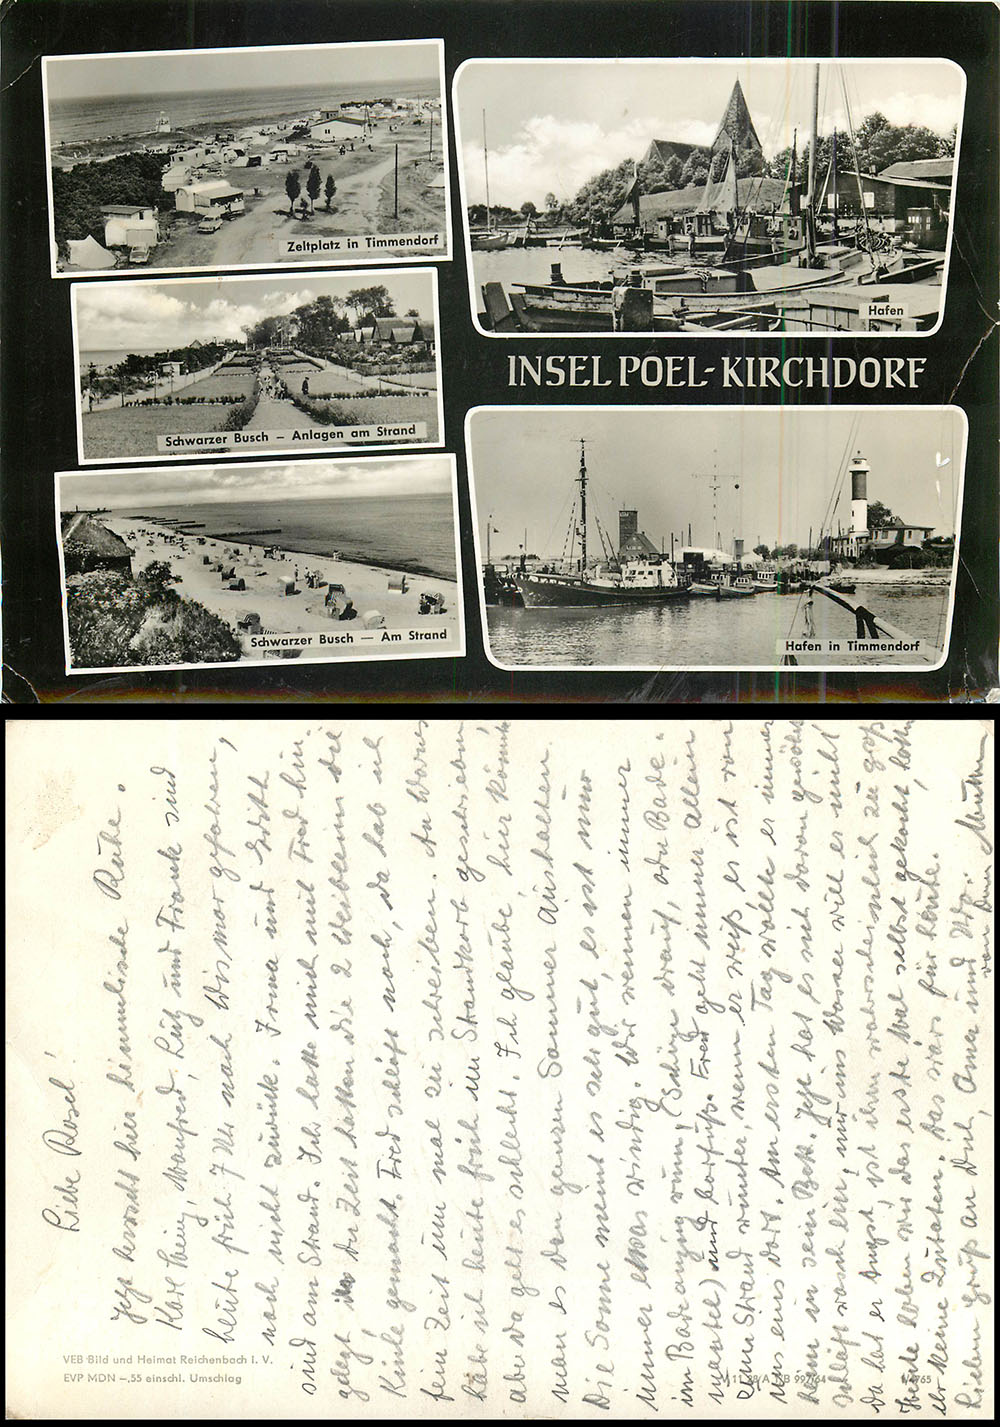 Zeltplatz in Timmendorf
Hafen
INSEL POEL-KIRCHDORF
Schwarzer Busch – Anlagen am Strand
Schwarzer Busch — Am Strand
Hafen in Timmendorf
Liebe Rosel!
Jetzt herrscht hier himmlische Ruhe.
Karl Heinz, Manfred, Lutz und Frank sind
heute früh 7 Uhr nach Wismar gefahren,
noch nicht zurück. Irma und Edith
sind am Strand. Ich hatte mich mit Fred hin-
gelegt. In der Zeit hatten die 2 Weiblein die
Küche gemacht. Fred schläft noch, da hab ich
fein Zeit um mal zu schreiben. An
habe ich heute früh im Strandkorb geschrieben
aber da geht es schlecht. Ich glaube, hier könnte
man es den ganzen Sommer aushalten.
Die Sonne meint es sehr gut, es ist nur
immer etwas windig. Wir rennen immer
im Badeanzug rum, (Schürze drauf, oder Bade-
mantel) und barfuß. Fred geht immer allein
zum Strand runter, wenn er weiß es ist von
uns eins dort. Am ersten Tag wollte er immer
heim in sein Bett. Jetzt hat es sich daran gewöhnt
schläft rasch ein, nur ins Wasser will er nicht
da hat er Angst, ist ihm wahrscheinlich zu groß
Heute haben wir das erste Mal selbst gekocht, hatten
keine Zutaten. Das wärs für heute.
Lieben Gruß an Dich, Oma und Udo.
von Deiner Mutti
VEB Bild und Heimat Reichenbach i. V.
EVP MDN –,55 einschl. Umschlag
A 1128/A KB 997/64
1/4765